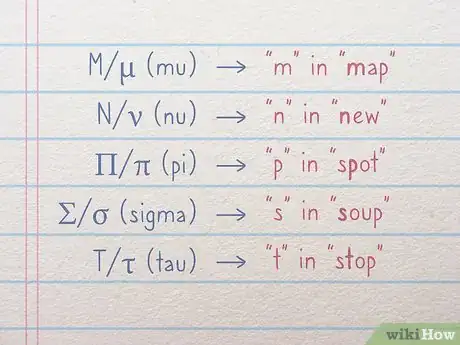 M/μ (mu) → "m" in "map"
N/ν (nu) → "n" in "new"
Π/π (pi) → "p" in "spot"
Σ/σ (sigma) → "s" in "soup"
T/τ (tau) → "t" in "stop"
wikiHow